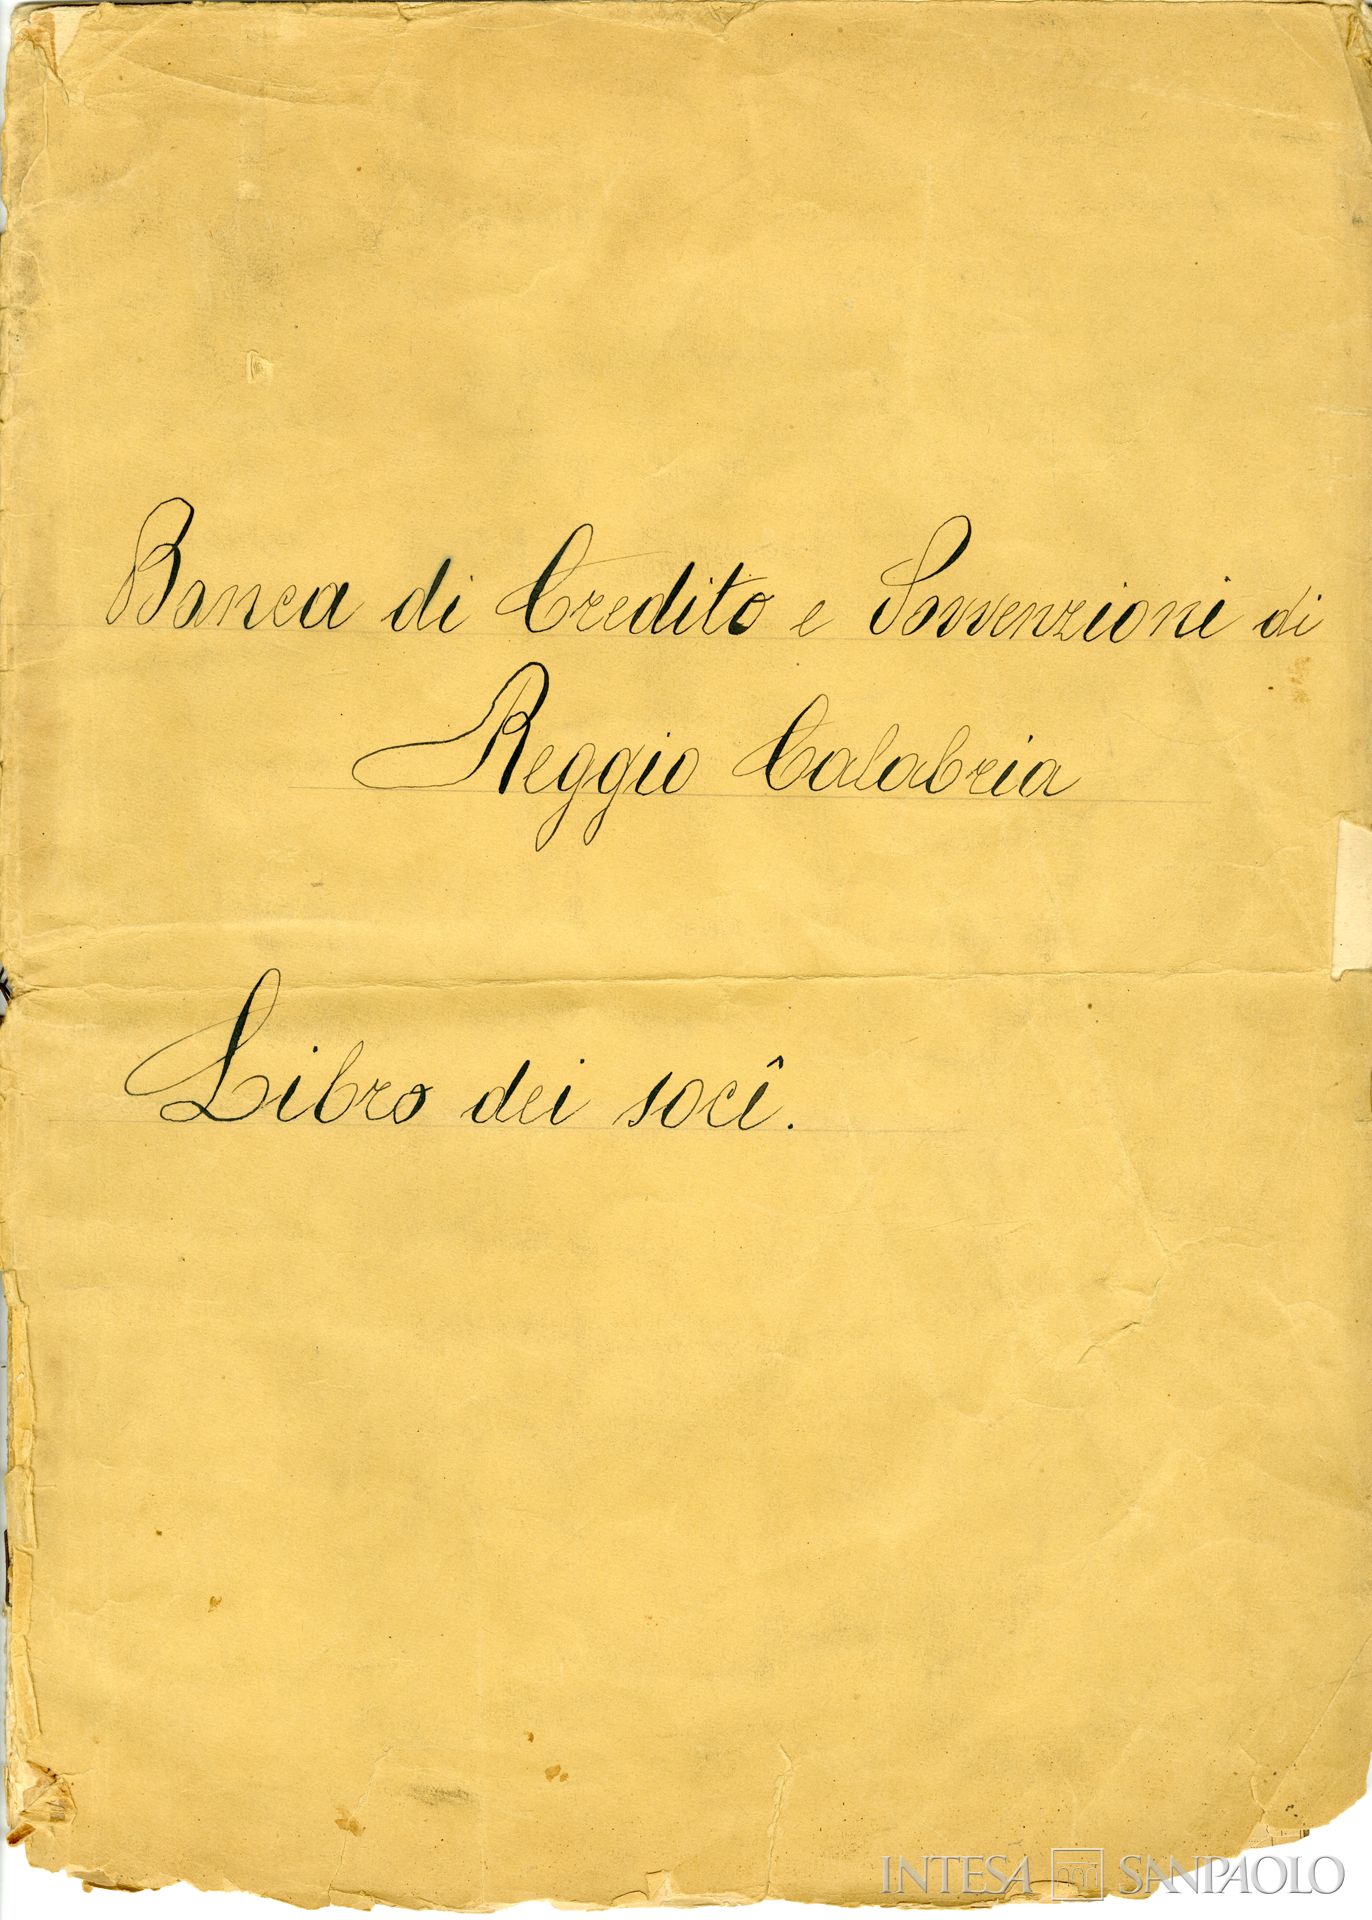 Banca di Credito e Sovvenzioni di
Reggio Calabria
Libro dei socî.
INTESA SANPAOLO